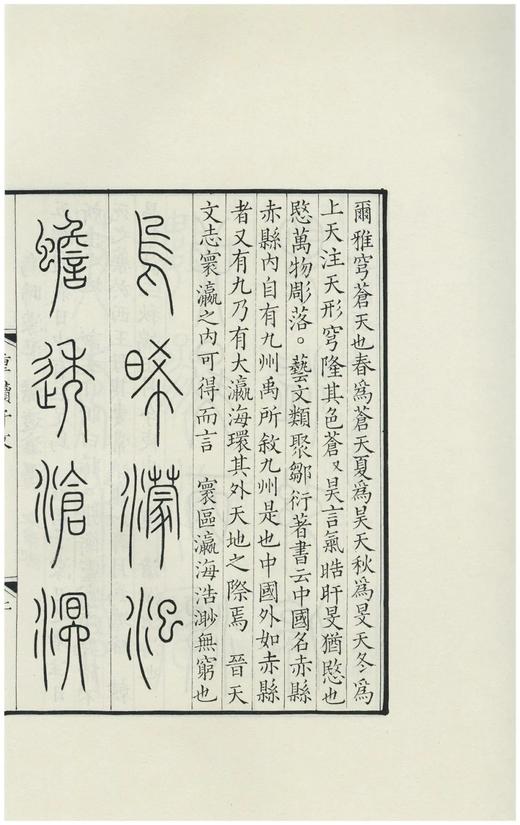 爾雅穹蒼天也春爲蒼天夏爲昊天秋爲旻天冬爲
上天注天形穹隆其色蒼〻昊言氣晧旰旻猶愍也
愍萬物彫落。藝文類聚鄒衍著書云中國名赤縣
赤縣內自有九州禹所敘九州是也中國外如赤縣
者又有九乃有大瀛海環其外天地之際焉　晉天
文志寰瀛之內可得而言　寰區瀛海浩渺無窮也
烏晞濛汜
蟾透滄溟
重續千文